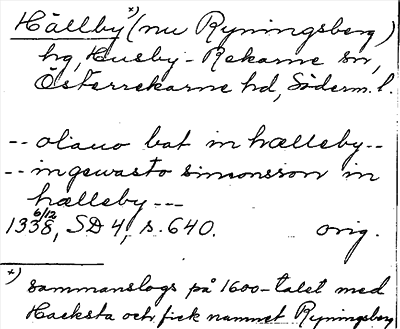 Hällby*) (nu Ryningsberg)
hg, Husby-Rekarne sn,
Österrekarne hd, Söderm. l.
-- olauo bat in hælleby--
-- ingeuasto simonsson in
hælleby ---
1338, 6/12 SD 4, s. 640. orig.
*) sammanslogs på 1600-talet med
Hacksta och fick namnet Ryningsberg